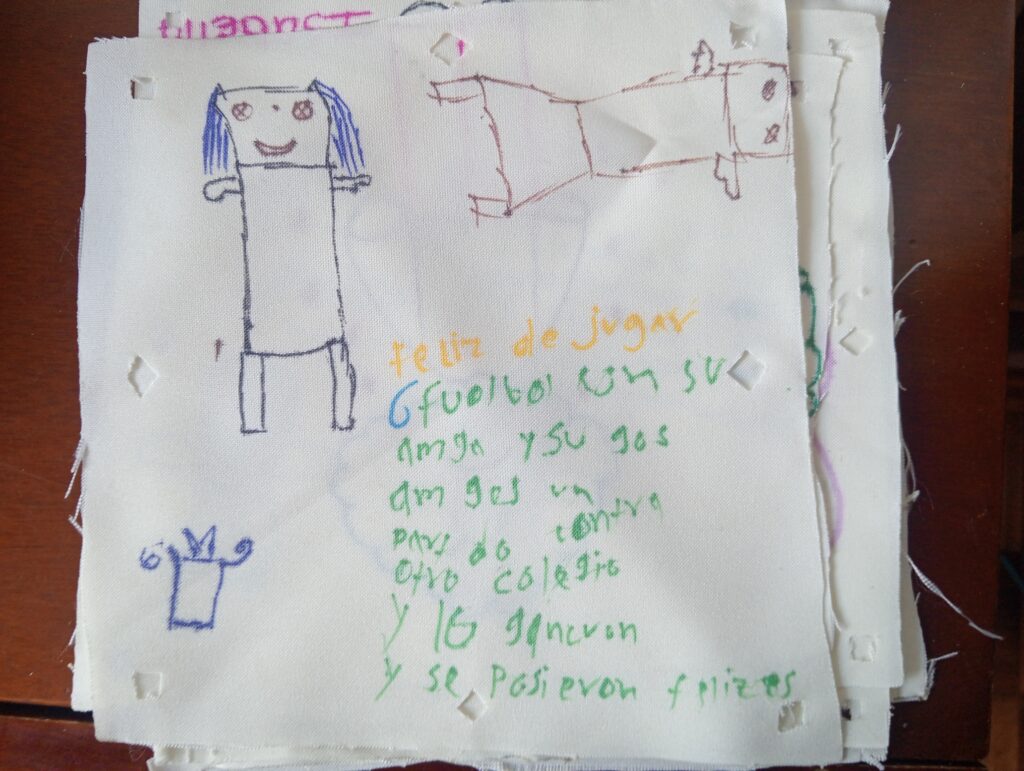 feliz de jugar
fuolbol con su
amga y su gos
am gos un
parsdo contra
otro colegio
y lo gancron
y se posieron felizes